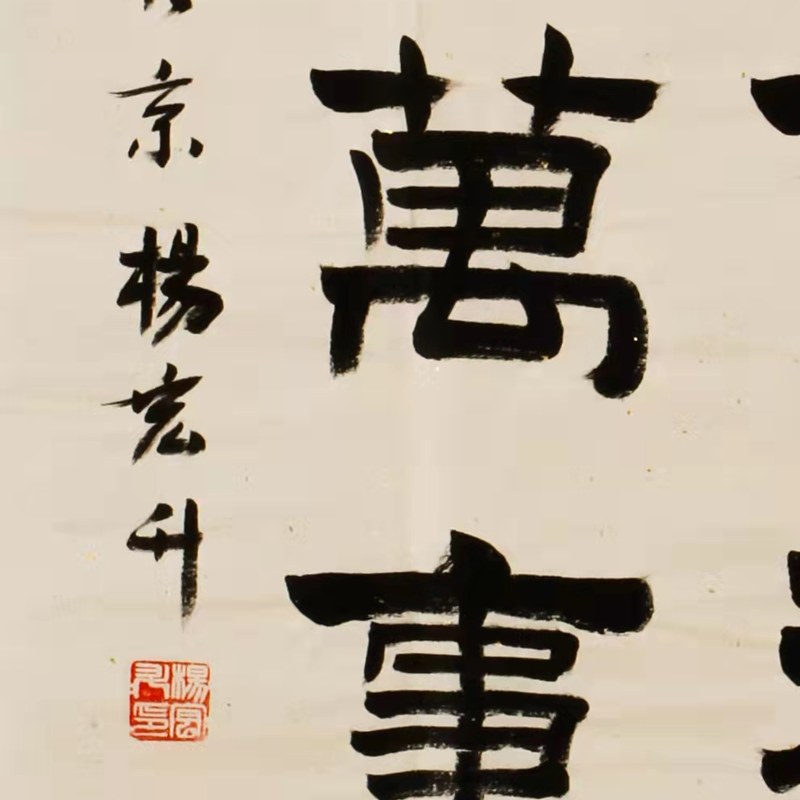 萬事
京楊宏升
楊宏升印